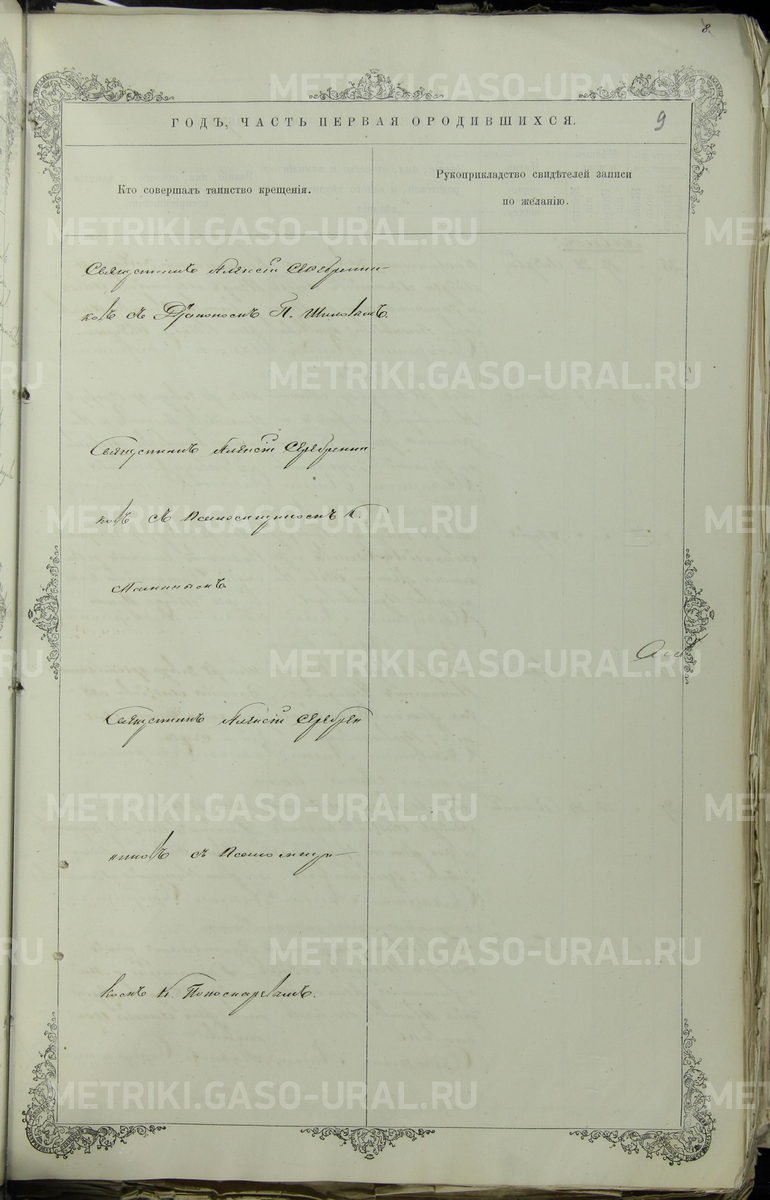 8
ГОДЪ, ЧАСТЬ ПЕРВАЯ О РОДИВШИХСЯ.
9
Кто совершалъ таинство крещенія.
Рукоприкладство свидѣтелей записи
по желанію.
Священникъ Алексій Серебренни-
ковъ съ Діакономъ П. Шиловымъ.
Священникъ Алексій Серебренни
ковъ съ Псаломщикомъ К.
Священникъ Алексій Серебрен
никовъ съ Псаломщи-
комъ К. Пономаревымъ.
METRIKI.GASO-URAL.RU